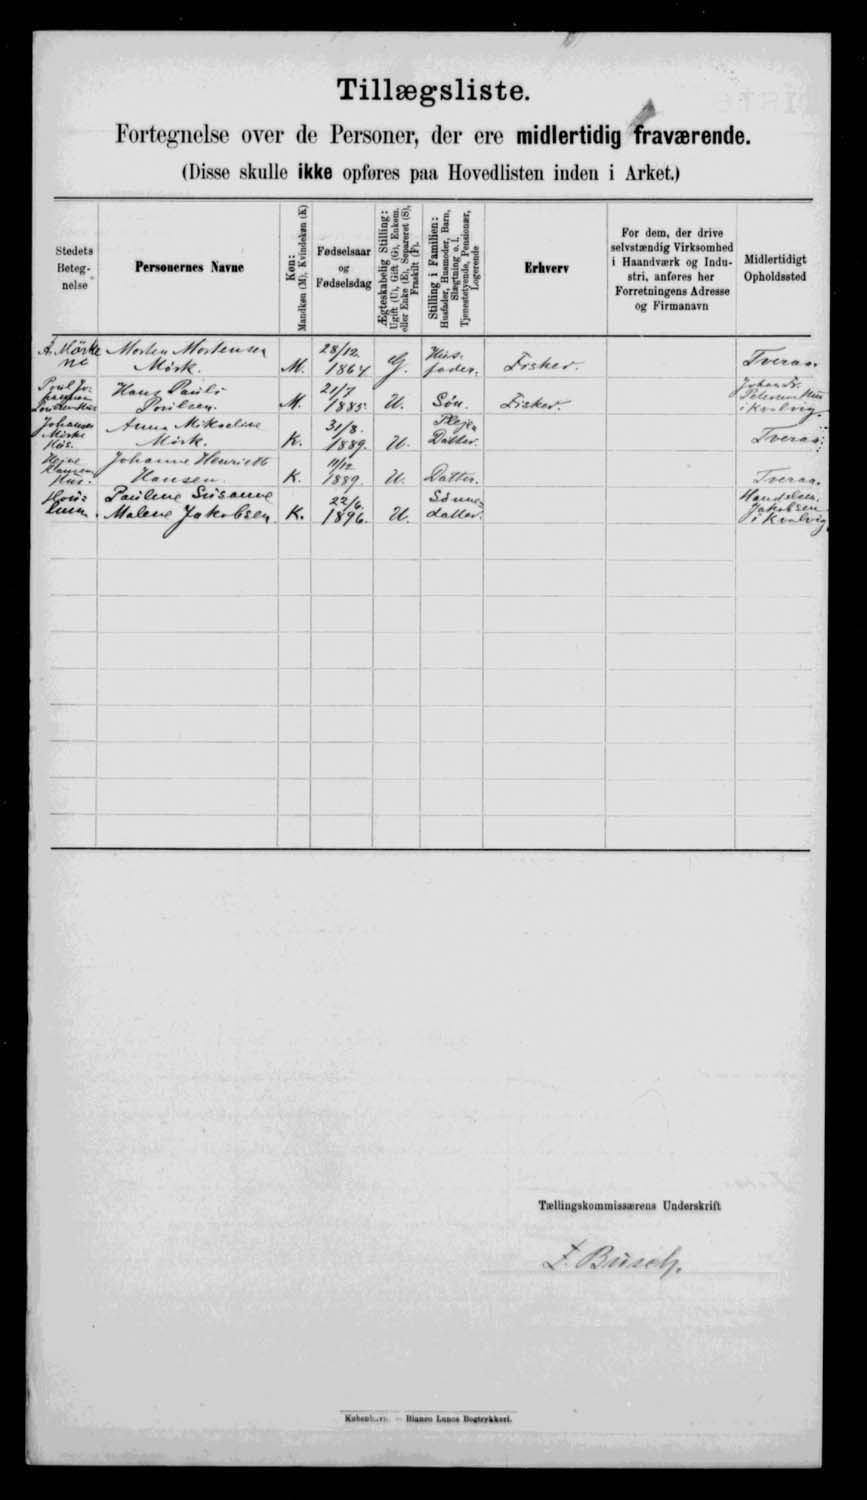 Tillægsliste.
Fortegnelse over de Personer, der ere midlertidig fraværende.
(Disse skulle ikke opføres paa Hovedlisten inden i Arket.)
Stedets Betegnelse
Personernes Navne
Køn: Mandkøn (M), Kvindekøn (K)
Fødselsaar og Fødselsdag
Ægteskabelig Stilling: Ugift (U), Gift (G), Enkem. eller Enke (E), Separeret (S), Fraskilt (F).
Stilling i Familien: Husfader, Husmoder, Barn, Slægtning o. l. Tjenestetyende, Pensionær, Logerende
Erhverv
For dem, der drive selvstændig Virksomhed i Haandværk og Industri, anføres her Forretningens Adresse og Firmanavn
Midlertidigt Opholdssted
Morten Mortensen Mørk. M. 28/12 1864 G. Husfader. Fisker. Tveraa.
Hans Pauli Poulsen. M. 21/7 1885 U. Søn. Fisker. Petersens Hus i Kvalvig.
Johannes Mørks Hus. Anna Mikaeline Mørk. K. 31/8. 1889. U. Pleje Datter. Tveraa.
Hansens Hus. Johanne Henriette Hansen. K. 11/12 1889. U. Datter. Tveraa.
Pauline Susanne Malene Jakobsen. K. 22/6. 1896. U. Sønnedatter. Jakobsen i Kvalvig
Tællingskommissærens Underskrift
Busch.
København. — Bianco Lunos Bogtrykkeri.